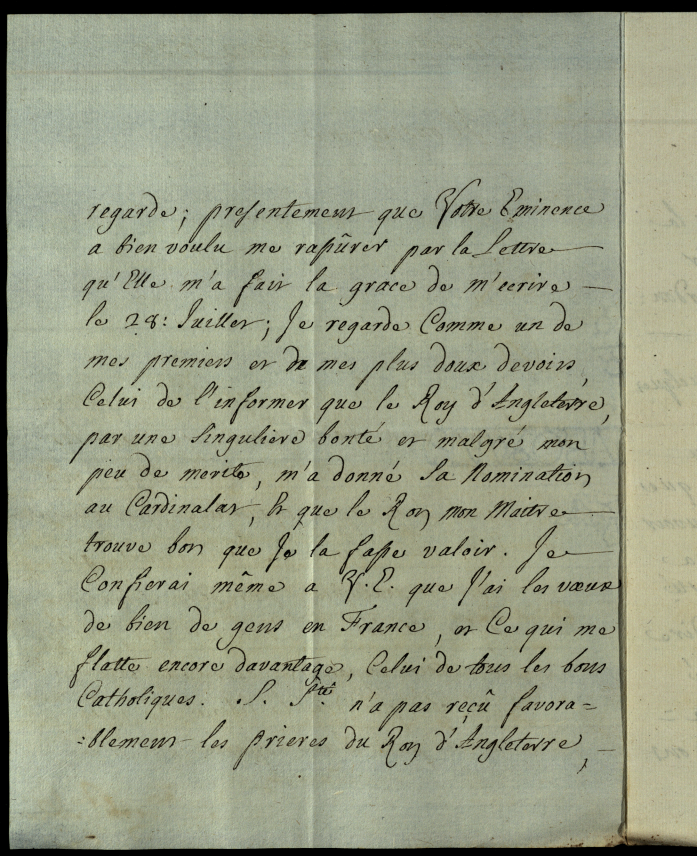 regarde; presentement que Votre Eminence
a bien voulu me rassûrer par la Lettre
qu'Elle m'a fait la grace de m'ecrire
le 28: Juillet; Je regarde Comme un de
mes premiers et de mes plus doux devoirs,
Celui de l'informer que le Roy d'Angleterre,
par une singuliere bonté et malgré mon
peu de merite, m'a donné sa Nomination
au Cardinalat, Et que le Roy mon Maitre
trouve bon que Je la fasse valoir. Je
Confierai même a V.E. que J'ai les vœux
de bien de gens en France, et Ce qui me
flatte encore davantage, Celui de tous les bons
Catholiques. S. Sté. n'a pas reçû favora=
=blement les prieres du Roy d'Angleterre,